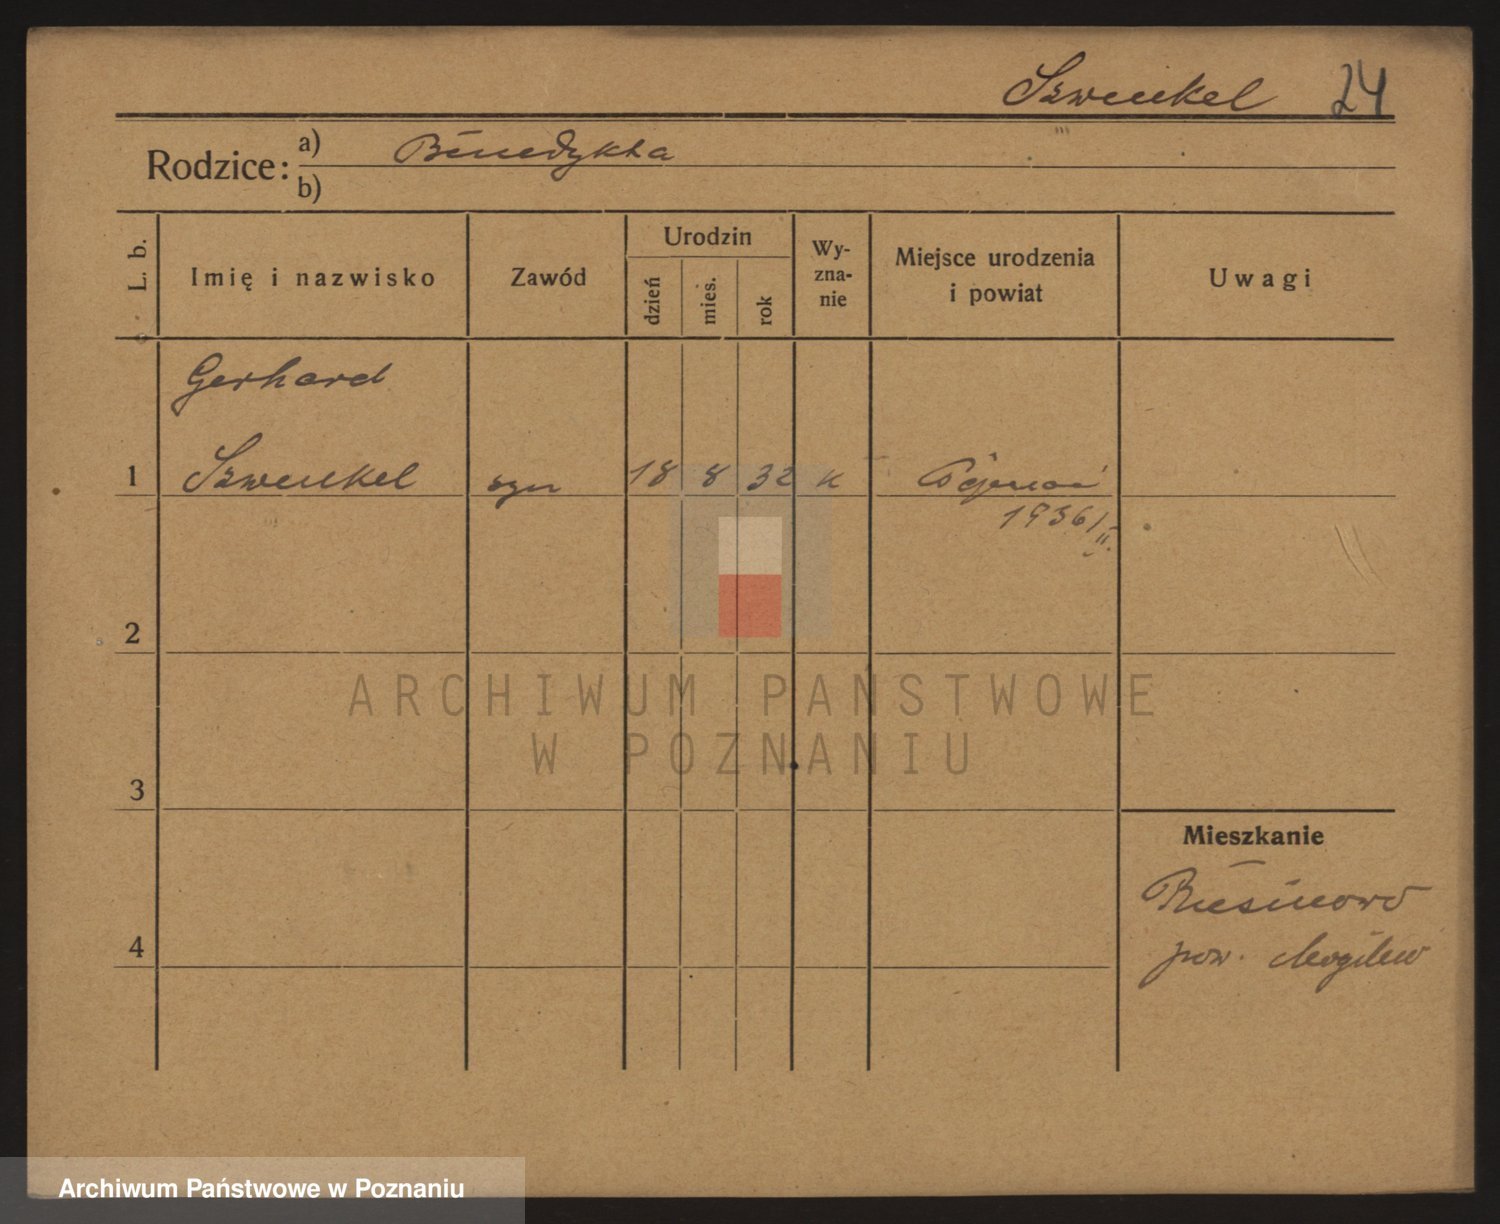 Szwenkel 24
Rodzice: a) Benedykta
b)
L. b.
Imię i nazwisko
Zawód
Urodzin
dzień
mies.
rok
Wy-
zna-
nie
Miejsce urodzenia
i powiat
Uwagi
Gerhard
1 Szwenkel syn 18 8 32 k
1936/II.
2
ARCHIWUM PAŃSTWOWE
W POZNANIU
3
Mieszkanie
pow. Mogilno
4
Archiwum Państwowe w Poznaniu